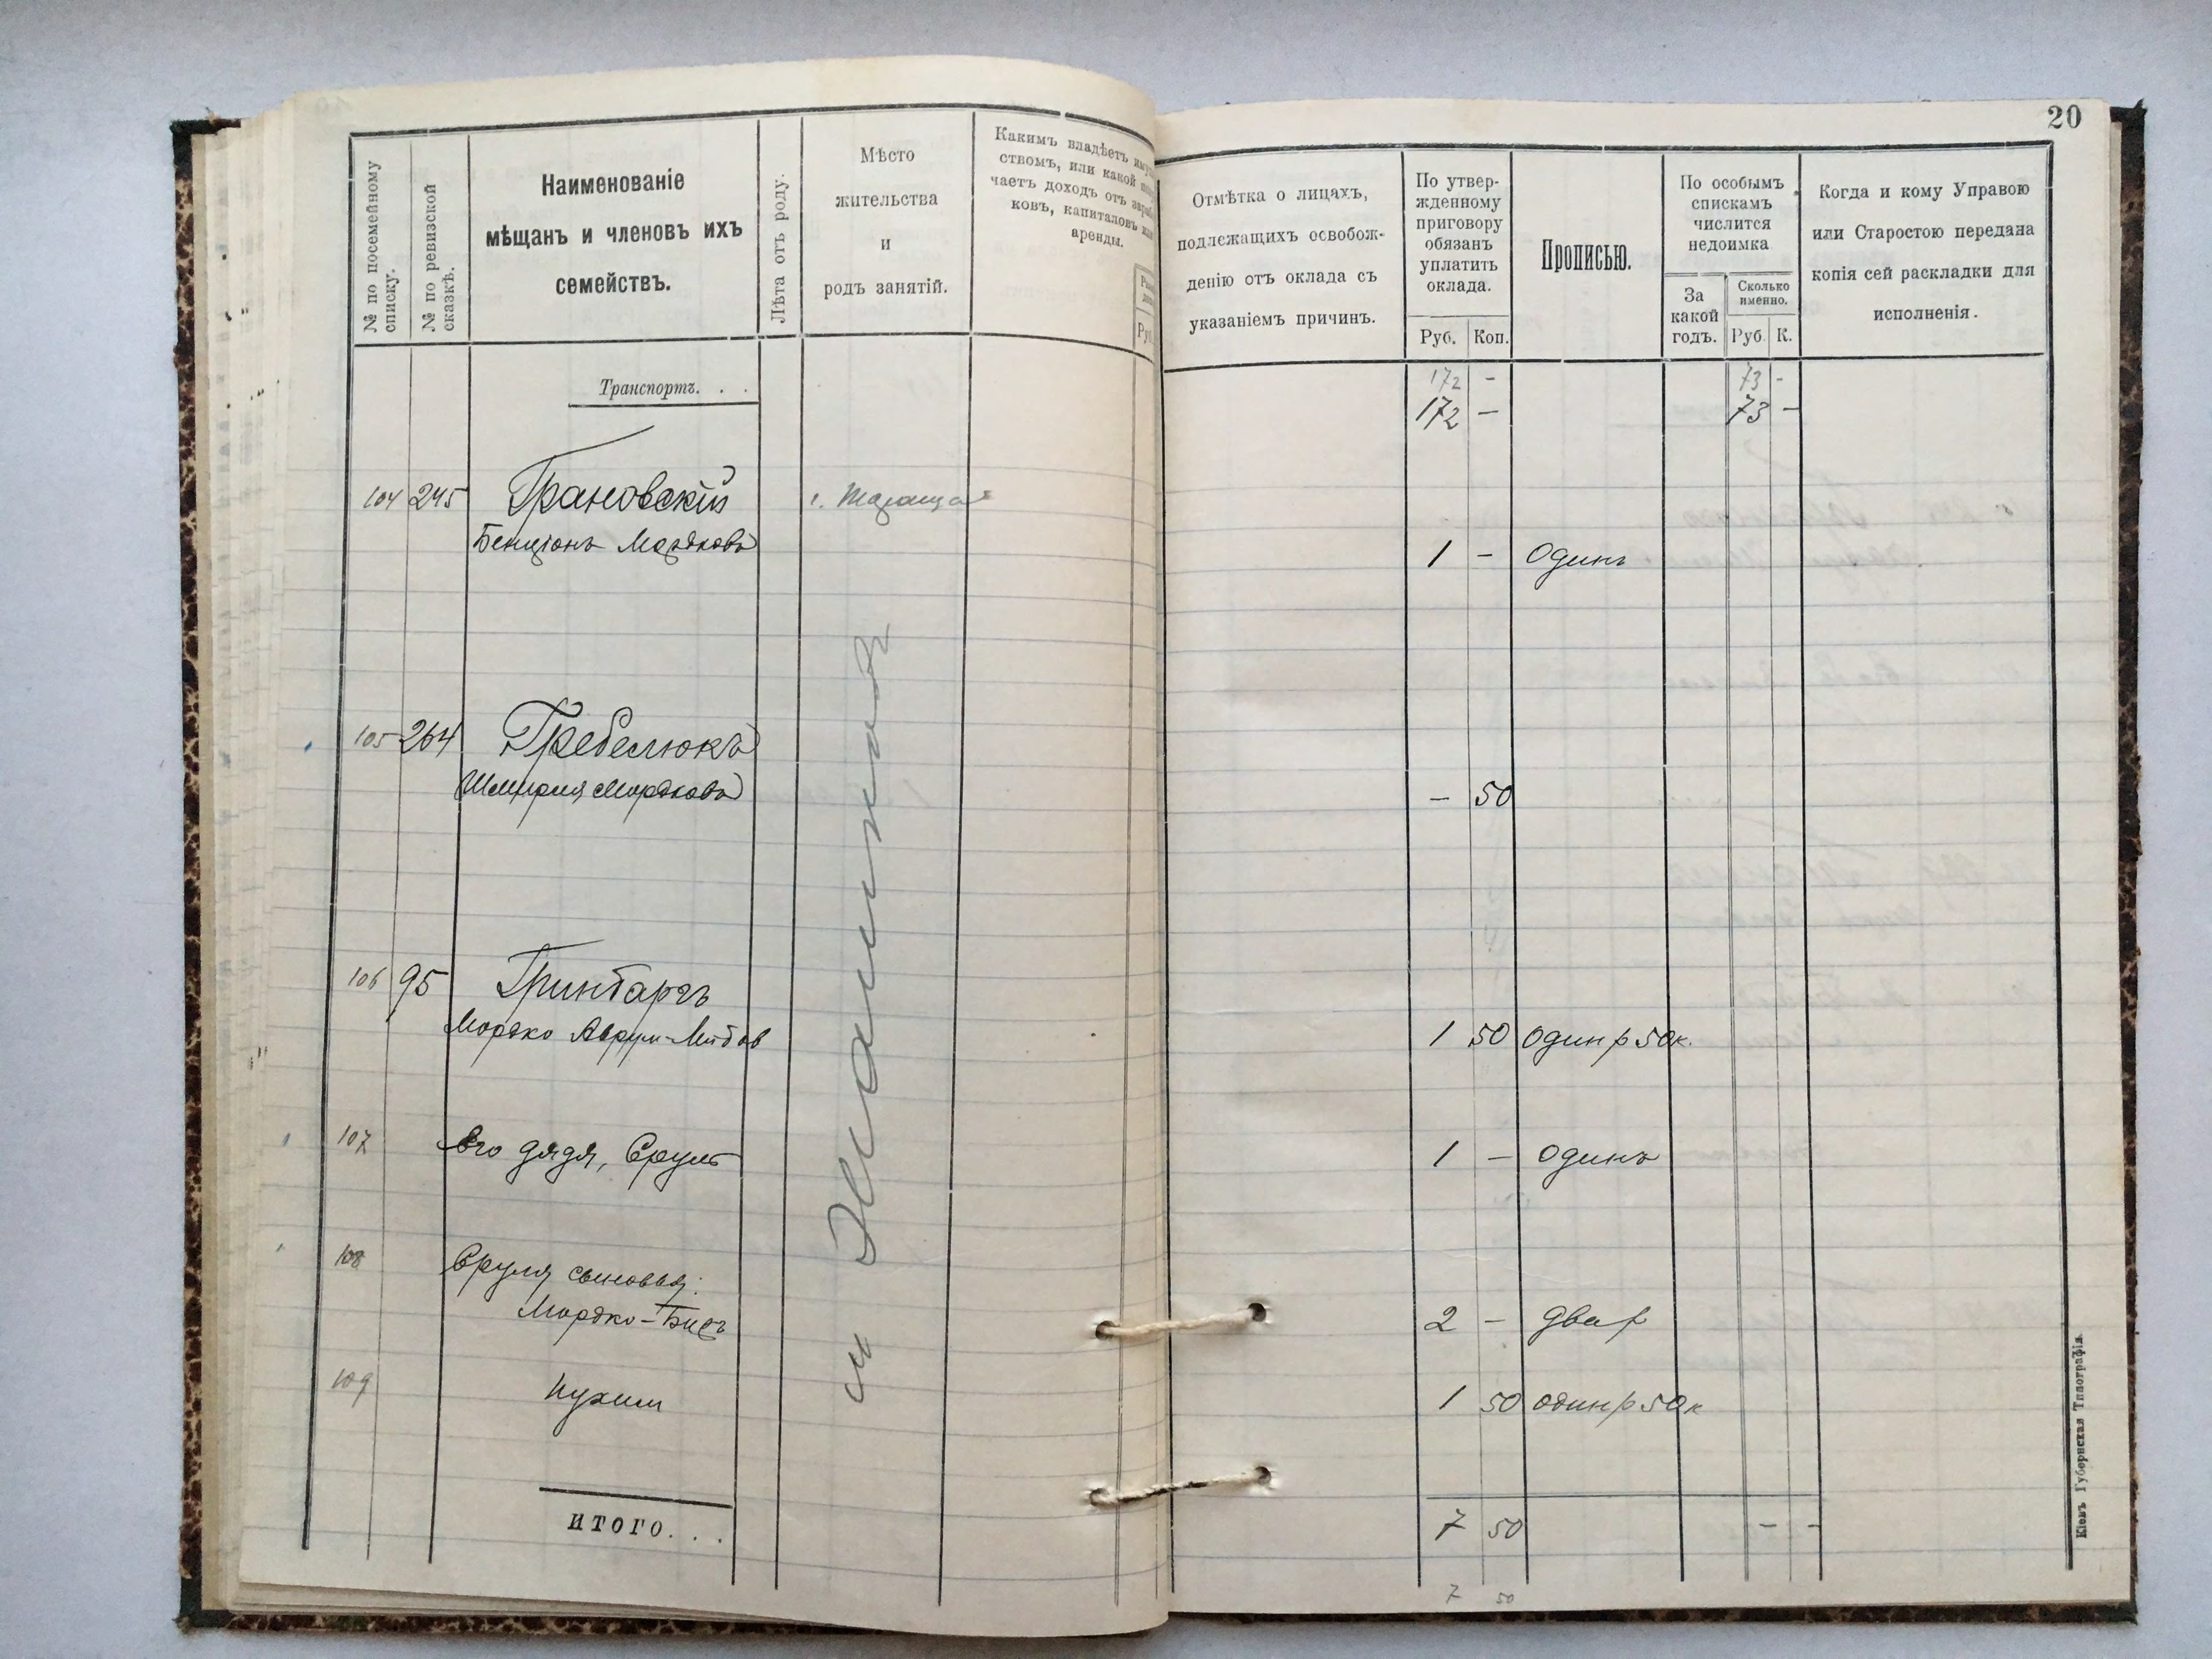 20
№ по посемейному списку.
№ по ревизской сказкѣ.
Наименованіе
мѣщанъ и членовъ ихъ
семействъ.
Лѣта отъ роду.
Мѣсто
жительства
и
родъ занятій.
Какимъ владѣетъ
ствомъ, или какой
чаетъ доходъ отъ
ковъ, капиталовъ
аренды.
Отмѣтка о лицахъ,
подлежащихъ освобож-
денію отъ оклада съ
указаніемъ причинъ.
По утвер-
жденному
приговору
обязанъ
уплатить
оклада.
Руб. Коп.
Прописью.
По особымъ
спискамъ
числится
недоимка
За
какой
годъ.
Сколько
именно.
Руб. К.
Когда и кому Управою
или Старостою передана
копія сей раскладки для
исполненія.
Транспортъ. . .
172 - 73 -
172 - 73 -
104 245 Грановскій
Бенціонъ Мордковъ 1 - Одинъ
105 264 Гребелюкъ
Шмирия Мордковъ - 50
106 95 Гринбаргъ
Мордко Аврум- 1 50 Один р 50 к.
107 Его дядя, Сруль 1 - Одинъ
108 Сруля сыновья:
Мордко- 2 - два р
109 Нухим 1 50 один р 50 к
ИТОГО. . . 7 50 - -
7 50
Кіевъ Губернская Типографія.